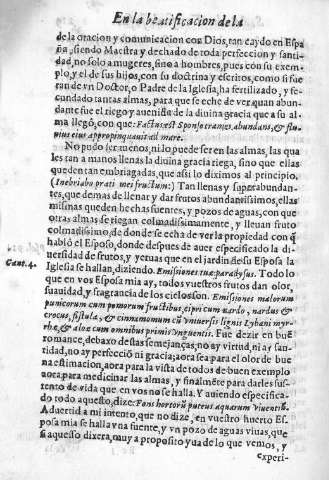 En la beatificacion de la
de la oracion y comunicacion con Dios, tan caydo en Espa
ña, siendo Maestra y dechado de toda perfeccion y santi-
dad, no solo a mugeres, sino a hombres, pues con su exem-
plo, y el de sus hijos, con su doctrina y escritos, como si fue
ran de vn Doctor, o Padre de la Iglesia, ha fertilizado, y fe-
cundado tantas almas, para que se eche de ver quan abun-
dante fue el riego y auenida de la diuina gracia que a su al-
ma llegó, con que: Factus est Sponsus trames abundans, & flu-
uius eius appropinquauit ad mare.
No pudo ser menos, ni lo puede ser en las almas, las qua
les tan a manos llenas la diuina gracia riega, sino que ellas
queden tan embriagadas, que assi lo diximos al principio.
(Inebriabo prati mei fructum:) Tan llenas y superabundan-
tes, que demas de llenar y dar frutos abundantissimos, ellas
mismas queden hechas fuentes, y pozos de aguas, con que
otras almas se riegan colmadissimamente, y lleuan fruto
colmadissimo, de donde se echa de ver la propiedad con q̃
habló el Esposo, donde despues de auer especificado la di-
uersidad de frutos, y yeruas que en el jardin de su Esposa la
Cant. 4.
Iglesia se hallan, diziendo. Emissiones tuæ paradysus. Todo lo
que en vos Esposa mia ay, todos vuestros frutos dan olor,
suauidad, y fragrancia de los cielos son. Emissiones malorum
punicorum cum pomorum fructibus, cipri cum nardo, nardus &
crocus, fistula, & cinnamomum cũ vniuersis lignis Lybani myr-
rha, & aloe cum omnibus primis vnguentis. Fue dezir en bué
romance, debaxo destas semejanças; no ay virtud, ni ay san-
tidad, no ay perfecciõ ni gracia; aora sea para el olor de bue
na estimacion, aora para la vista de todos de buen exemplo
aora para medicinar las almas, y finalmẽte para darles sus-
tento de vida que en vos no se halla. Y auiendo especifica-
do todo aquesto, dize: Fons hortorũ puteus aquarum viuentiũ.
Aduertid a mi intento, que no dize, en vuestro huerto Es-
posa mia se halla vna fuente, y vn pozo de aguas viuas, que
si aquesso dixera, muy a proposito yua de lo que vemos, y
experi-